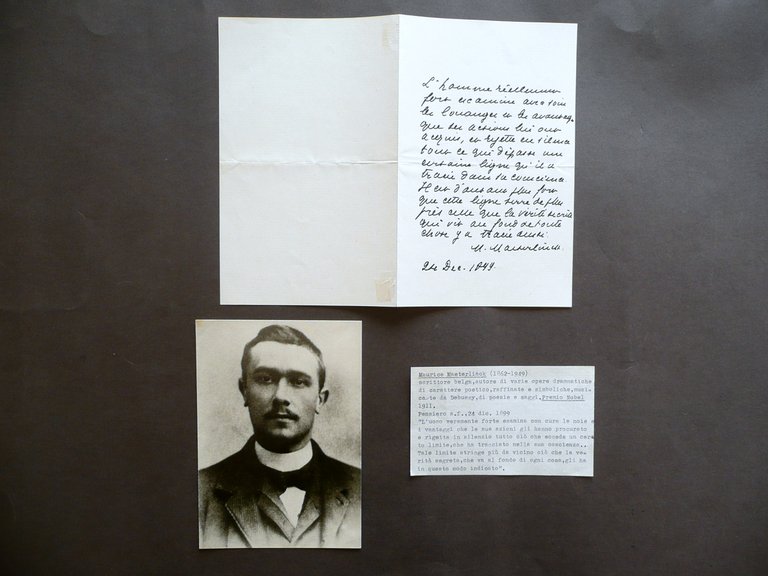 L'homme réellement
fort examine avec soin
les louanges et les avantages
que ses actions lui ont
acquis, et rejette en silence
tout ce qui dépasse une
certaine ligne qu'il a
tracée dans sa conscience
Il est d'autant plus fort
que cette ligne serre de plus
près celle que la vérité secrète
qui vit au fond de toute
chose y a tracée aussi.
M. Maeterlinck.
24 Dec. 1899.
Maurice Maeterlinck (1862-1949)
scrittore belga,autore di varie opere drammatiche
di carattere poetico,raffinate e simboliche,musi-
cate da Debussy,di poesie e saggi,Premio Nobel
1911.
Pensiero a.f.,24 dic. 1899
"L'uomo veramente forte esamina con cura le lodi e
i vantaggi che le sue azioni gli hanno procurato
e rigetta in silenzio tutto ciò che eccede un cer
to limite,che ha tracciato nella sua coscienza..
Tale limite stringe più da vicino ciò che la ve-
rità segreta,che va al fondo di ogni cosa,gli ha
in questo modo indicato".